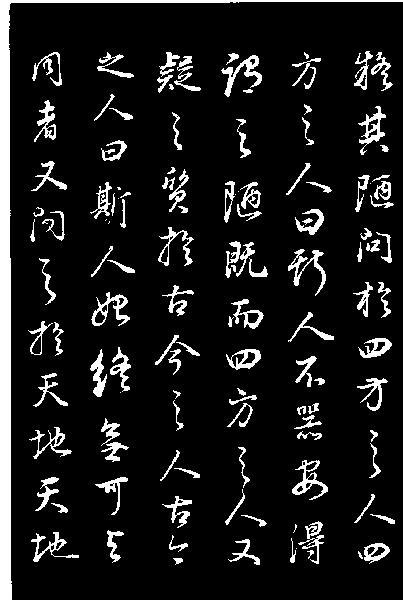 疑其陋問於四方之人四
方之人曰斯人不器安得
謂之陋既而四方之人又
疑之質於古今之人古今
之人曰斯人始終無可与
同者又問之於天地天地